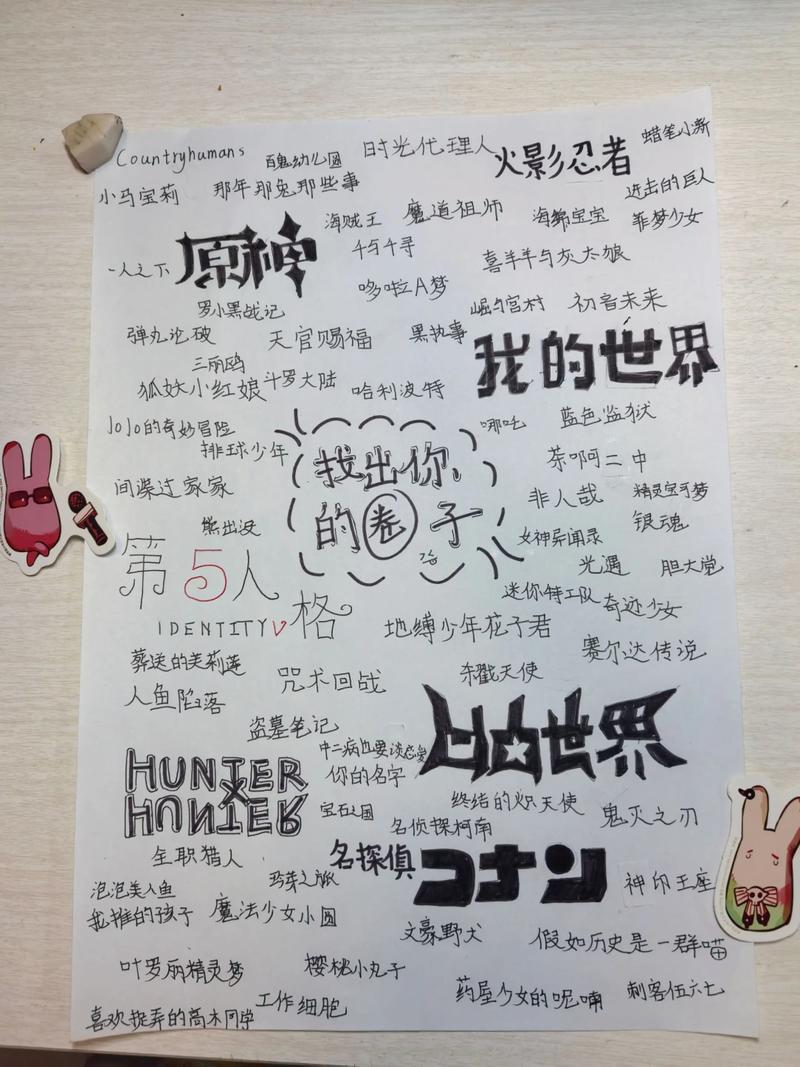 Countryhumans
百鬼幼儿园
时光代理人
火影忍者
蜡笔小新
小马宝莉
那年那兔那些事
进击的巨人
海贼王
魔道祖师
海绵宝宝
菲梦少女
原神
千与千寻
一人之下
喜羊羊与灰太狼
哆啦A梦
罗小黑战记
崛与宫村
初音未来
弹丸论破
天官赐福
黑执事
我的世界
三丽鸥
狐妖小红娘
斗罗大陆
哈利波特
JoJo的奇妙冒险
排球少年
找出你
的圈子
哪吒
蓝色监狱
茶啊二中
间谍过家家
非人哉
精灵宝可梦
熊出没
女神异闻录
银魂
第5人
格
IDENTITY V
光遇
胆大党
迷你特工队
奇迹少女
地缚少年花子君
赛尔达传说
葬送的芙莉莲
咒术回战
杀戮天使
人鱼陷落
盗墓笔记
世界
中二病也要谈恋爱
你的名字
HUNTER
X
HUNTER
宝石之国
终结的炽天使
鬼灭之刃
名侦探柯南
全职猎人
名探偵
コナン
泡泡美人鱼
玛芽之旅
神印王座
我推的孩子
魔法少女小圆
文豪野犬
假如历史是一群喵
叶罗丽精灵梦
樱桃小丸子
药屋少女的呢喃
刺客伍六七
喜欢捉弄的高木同学
工作细胞